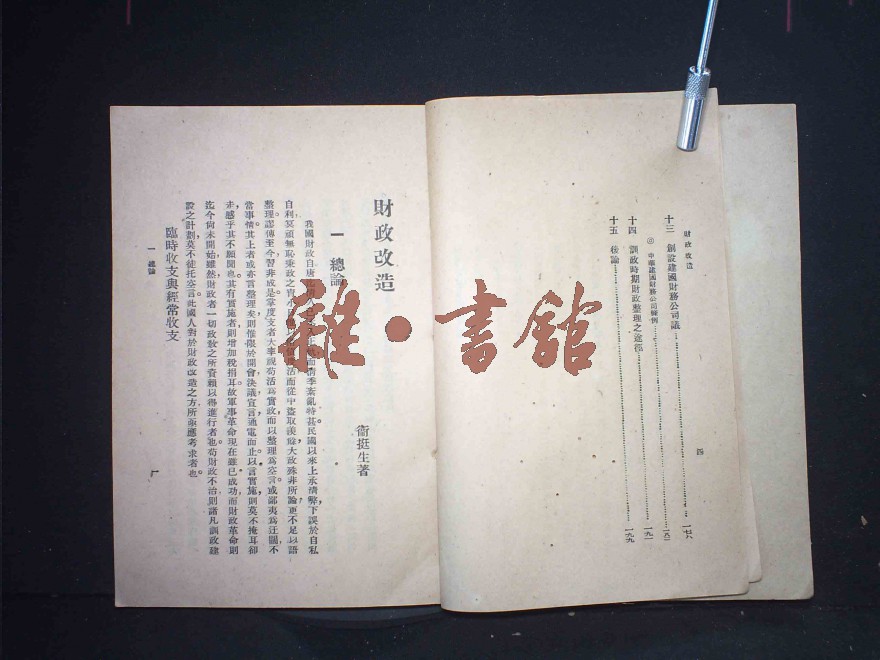 財政改造
十三　創設建國財務公司議……一七八
㊀　中華建國財務公司條例……一八一
十四　訓政時期財政整理之途徑……一九一
十五　後論……一九九
四
財政改造
衞挺生著
一　總論
我國財政自唐 季紊亂特甚民國以來上承清弊下誤於自私
自利冥頑無恥秉政之 活而從中盜取漢餘大政殊非所論更不足以語
整理謬傳至今習非成是掌度支者大率視苟活爲實政而以整理爲空言或鄙夷爲迂闊不
當事情其上者或亦言整理矣則僅限於開會決議宣言通電而止以言實施則莫不掩耳卻
走感乎其不願聞也其有實施者則增加稅捐耳故軍事革命現在雖已成功而財政革命則
迄今尚未開始雖然財政者一切政教之所資賴以得進行者也苟財政不治則諸凡訓政建
設之計劃莫不徒托空言此國人對於財政改造之方所亟應考求者也
臨時收支與經常收支
一　總論
一
雜·書館